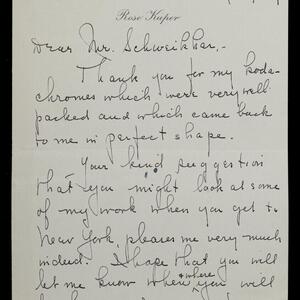 Rose Kuper
Dear Mr. Schweikhar,-
Thank you for my koda-
chromes which were very well
packed and which came back
to me in perfect shape.
Your kind suggestion
that you might look at some
of my work when you get to
New York, pleases me very much
indeed. I hope that you will
let me know when + where you will